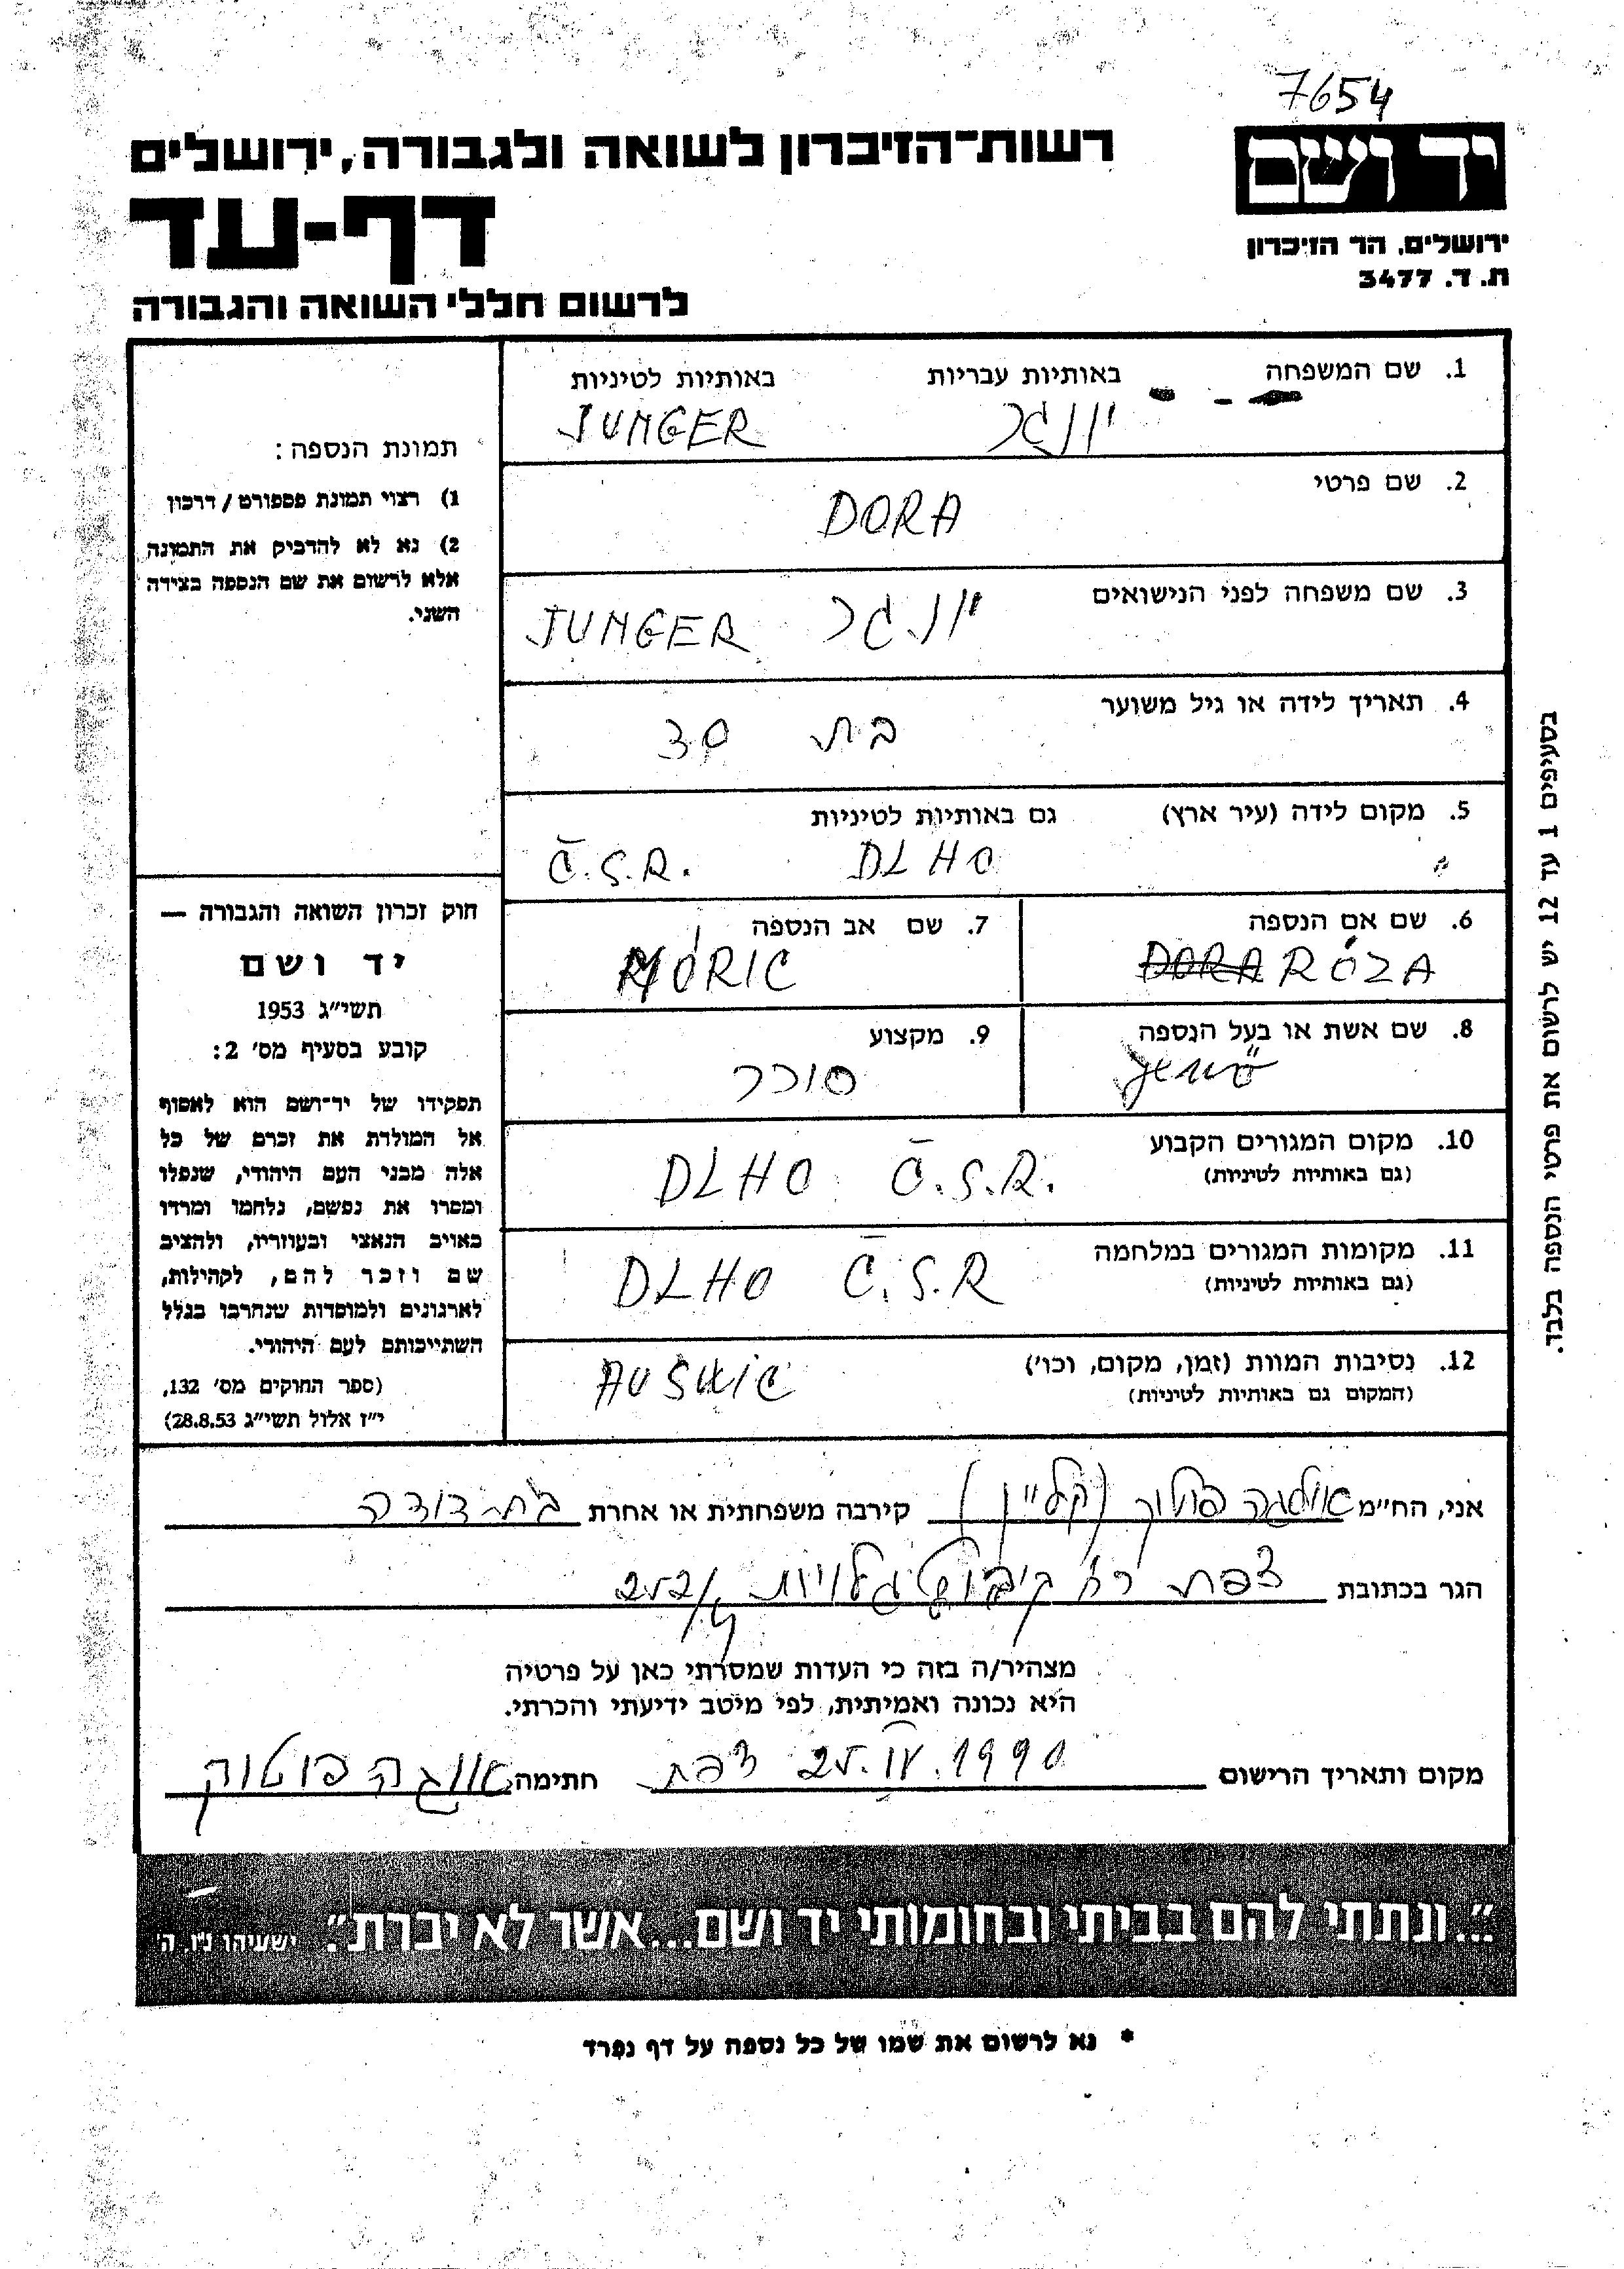 7654
יד ושם
רשות־הזיכרון לשואה ולגבורה, ירושלים
דף-עד
ירושלים, הר הזיכרון
ת. ד. 3477
לרשום חללי השואה והגבורה
1. שם המשפחה באותיות עבריות באותיות לטיניות
יונגר JUNGER
2. שם פרטי
DORA
3. שם משפחה לפני הנישואים
יונגר JUNGER
4. תאריך לידה או גיל משוער
בת 30
5. מקום לידה (עיר ארץ) גם באותיות לטיניות
DLHO Č.S.R.
6. שם אם הנספה
DORA RÓZA
7. שם אב הנספה
MÓRIC
8. שם אשת או בעל הנספה
Jenő
9. מקצוע
סוכר
10. מקום המגורים הקבוע
(גם באותיות לטיניות)
DLHO Č.S.R.
11. מקומות המגורים במלחמה
(גם באותיות לטיניות)
DLHO Č.S.R
12. נסיבות המוות (זמן, מקום, וכו')
(המקום גם באותיות לטיניות)
AUSWIC
תמונת הנספה:
1) רצוי תמונת פספורט / דרכון
2) נא לא להדביק את התמונה
אלא לרשום את שם הנספה בצידה
השני.
חוק זכרון השואה והגבורה —
יד ושם
תשי"ג 1953
קובע בסעיף מס' 2:
תפקידו של יד־ושם הוא לאסוף
אל המולדת את זכרם של כל
אלה מבני העם היהודי, שנפלו
ומסרו את נפשם, נלחמו ומרדו
באויב הנאצי ובעוזריו, ולהציב
שם וזכר להם, לקהילות,
לארגונים ולמוסדות שנחרבו בגלל
השתייכותם לעם היהודי.
(ספר החוקים מס' 132,
י"ז אלול תשי"ג 28.8.53)
בסעיפים 1 עד 12 יש לרשום את פרטי הנספה בלבד.
אני, הח"מ אולגה פולוק (קליין) קירבה משפחתית או אחרת בת דודה
הגר בכתובת צפת רח קיבוץ גלויות 252/4
מצהיר/ה בזה כי העדות שמסרתי כאן על פרטיה
היא נכונה ואמיתית, לפי מיטב ידיעתי והכרתי.
מקום ותאריך הרישום 25.IV.1990 צפת חתימה
"...ונתתי להם בביתי ובחומותי יד ושם...אשר לא יכרת". ישעיהו נ"ו. ה'
* נא לרשום את שמו של כל נספה על דף נפרד